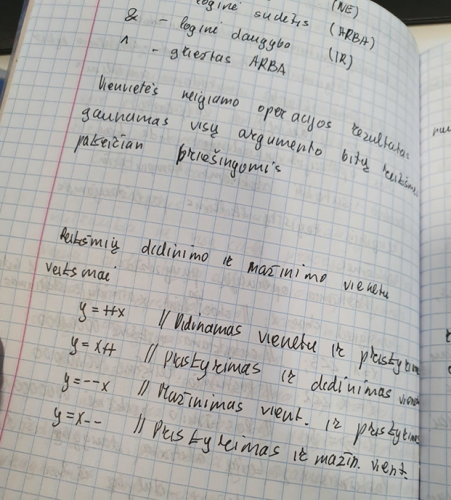 loginė sudėtis (ARBA)
(NE)
& - loginė daugyba (IR)
^ - griežtas ARBA
Vienvietės neigiamo operacijos rezultatas
gaunamas visų argumento bitų
pakeičiam priešingomis
Reikšmių didinimo ir mažinimo vienetu
veiksmai
y = ++x // Didinamas vienetu ir priskyrim
y = x++ // Priskyrimas ir didinimas viene
y = --x // Mažinimas vient. ir priskyrima
y = x-- // Priskyrimas ir mažin. vient.